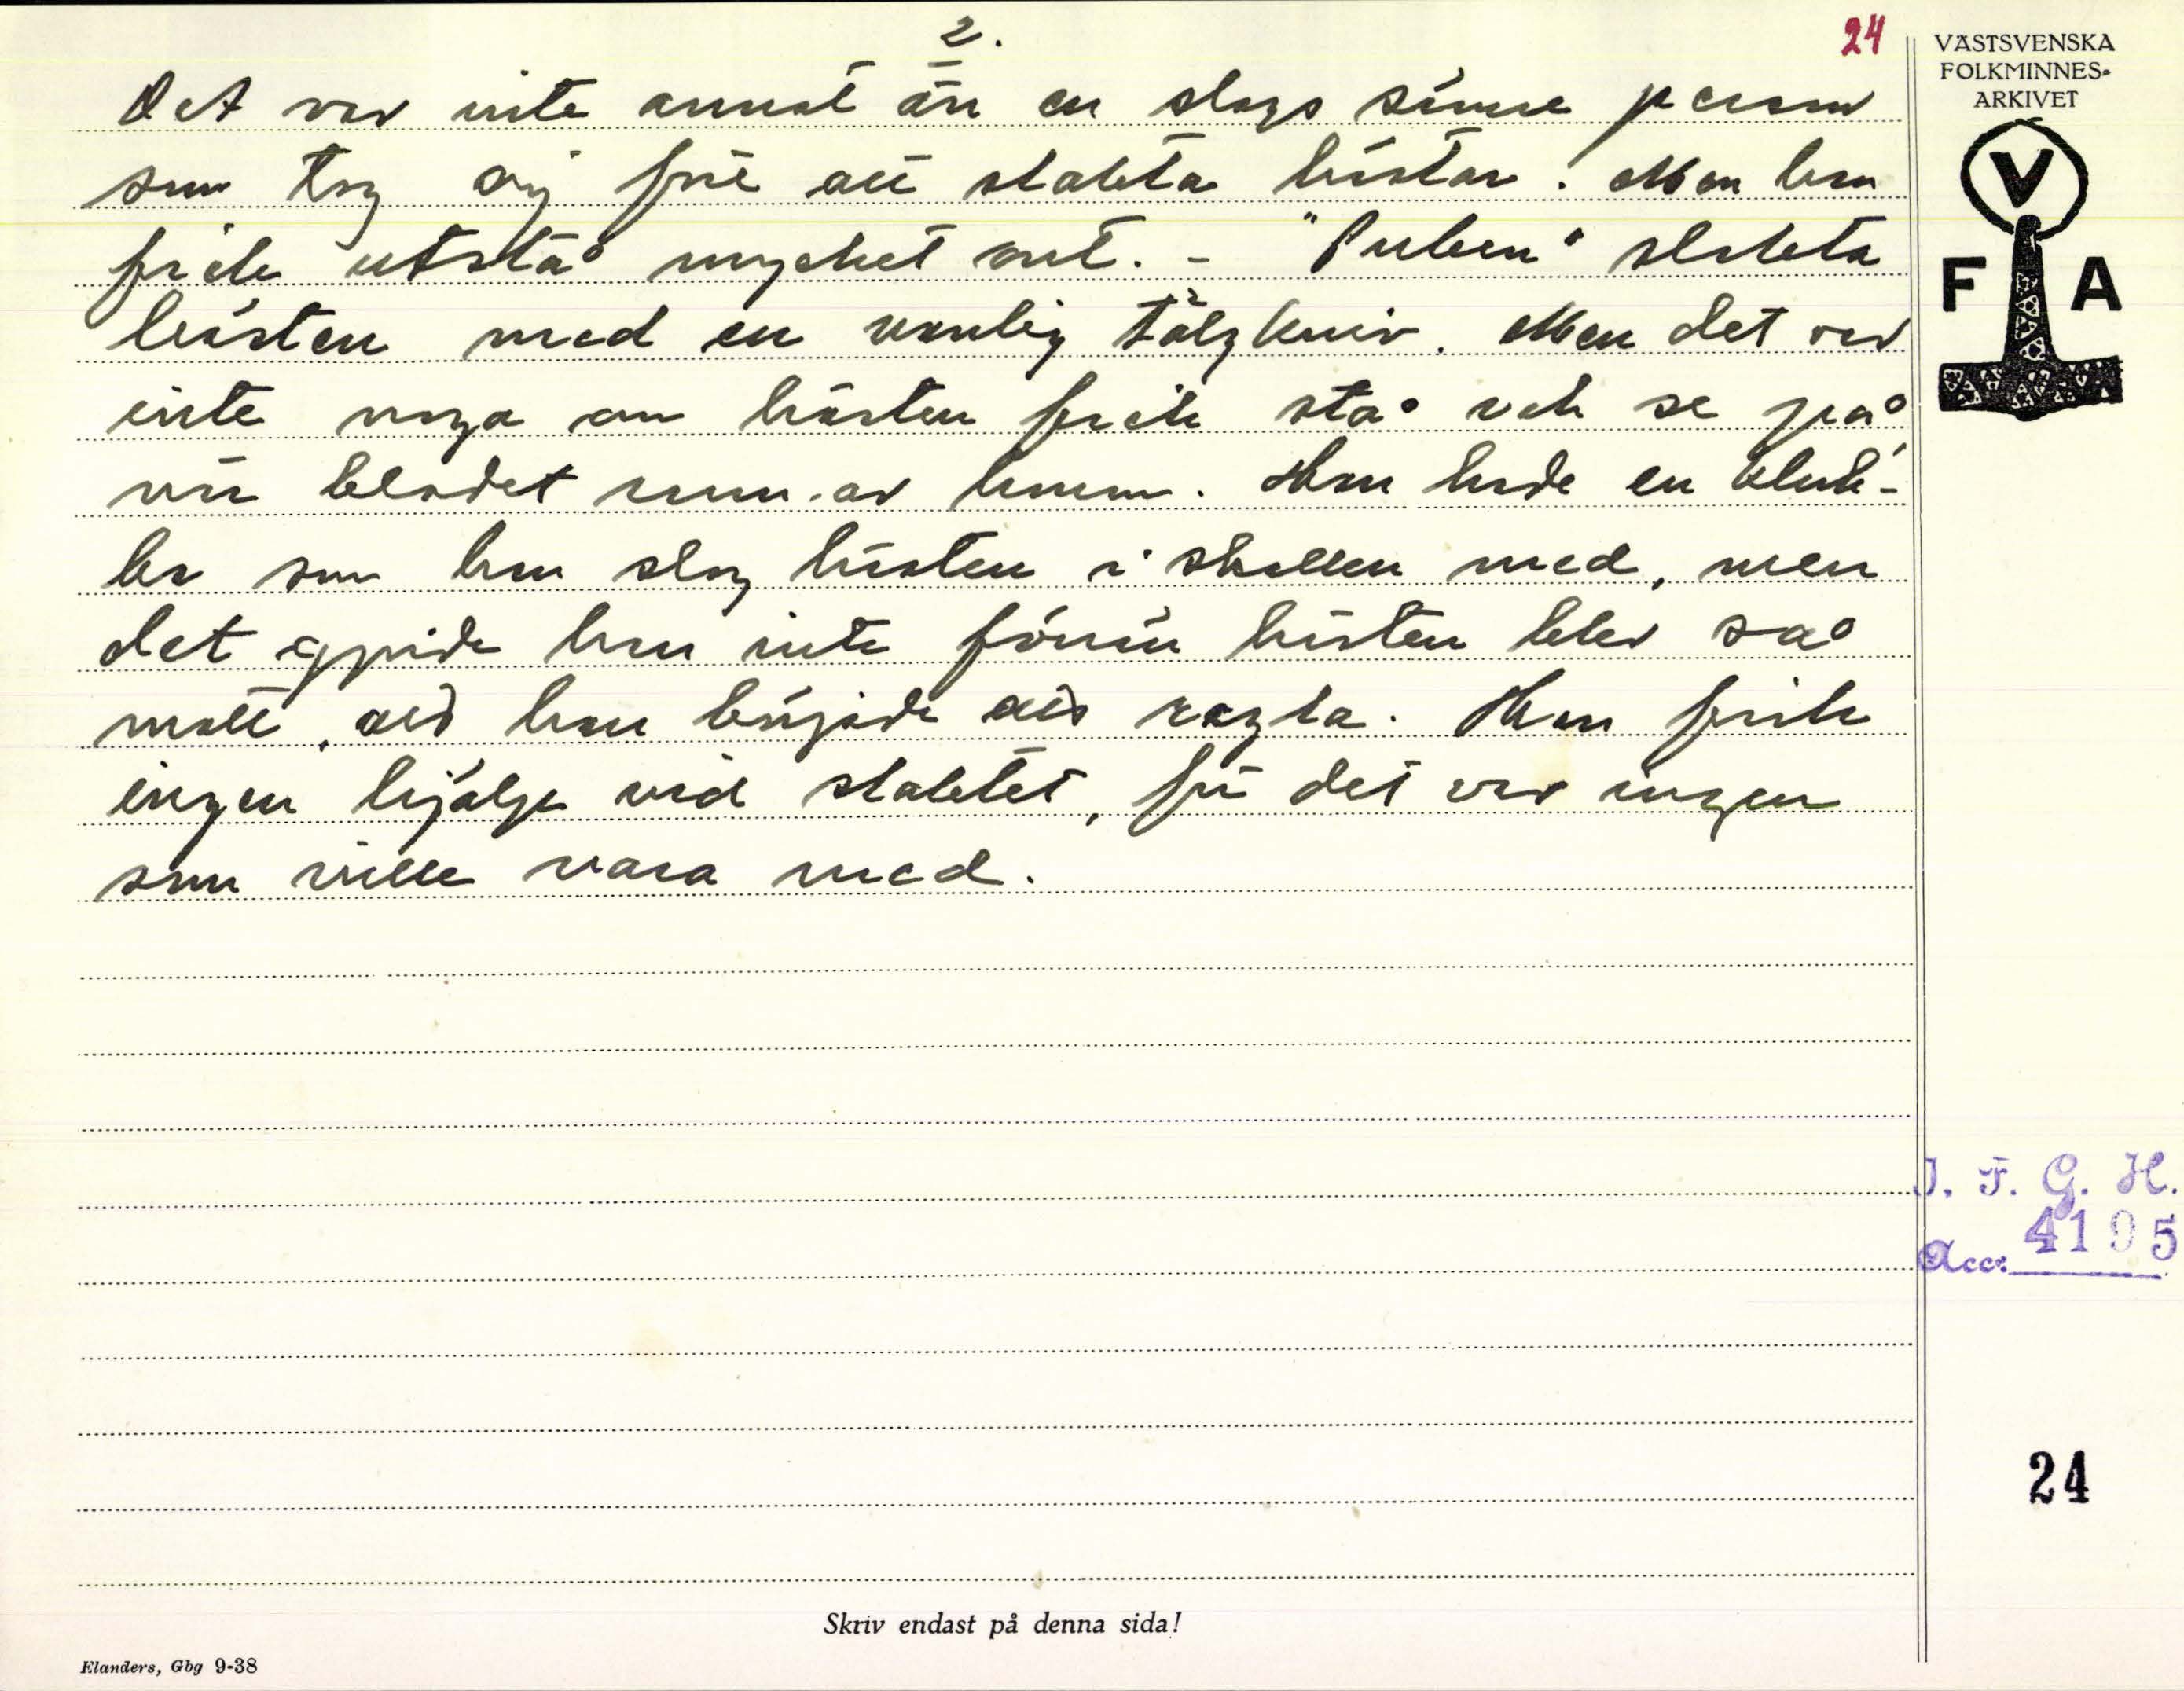 2.
24
VÄSTSVENSKA
FOLKMINNES-
ARKIVET
V
F A
Det var inte annat än en slags sämre person
som tog sig före att slakta hästar. Men han
fick utstå mycket ont. - "Puben" slakta
hästen med en vanlig tälgkniv. Men det var
inte noga om hästen fick stå och se på
när blodet rann av honom. Han hade en klub-
ba som han slog hästen i skallen med, men
det gjorde han inte förrän hästen blev så
matt, att han började att ragla. Han fick
ingen hjälp vid slaktet, för det var ingen
som ville vara med.
I. F. G. H.
Acc. 4195
24
Skriv endast på denna sida!
Elanders, Gbg 9-38